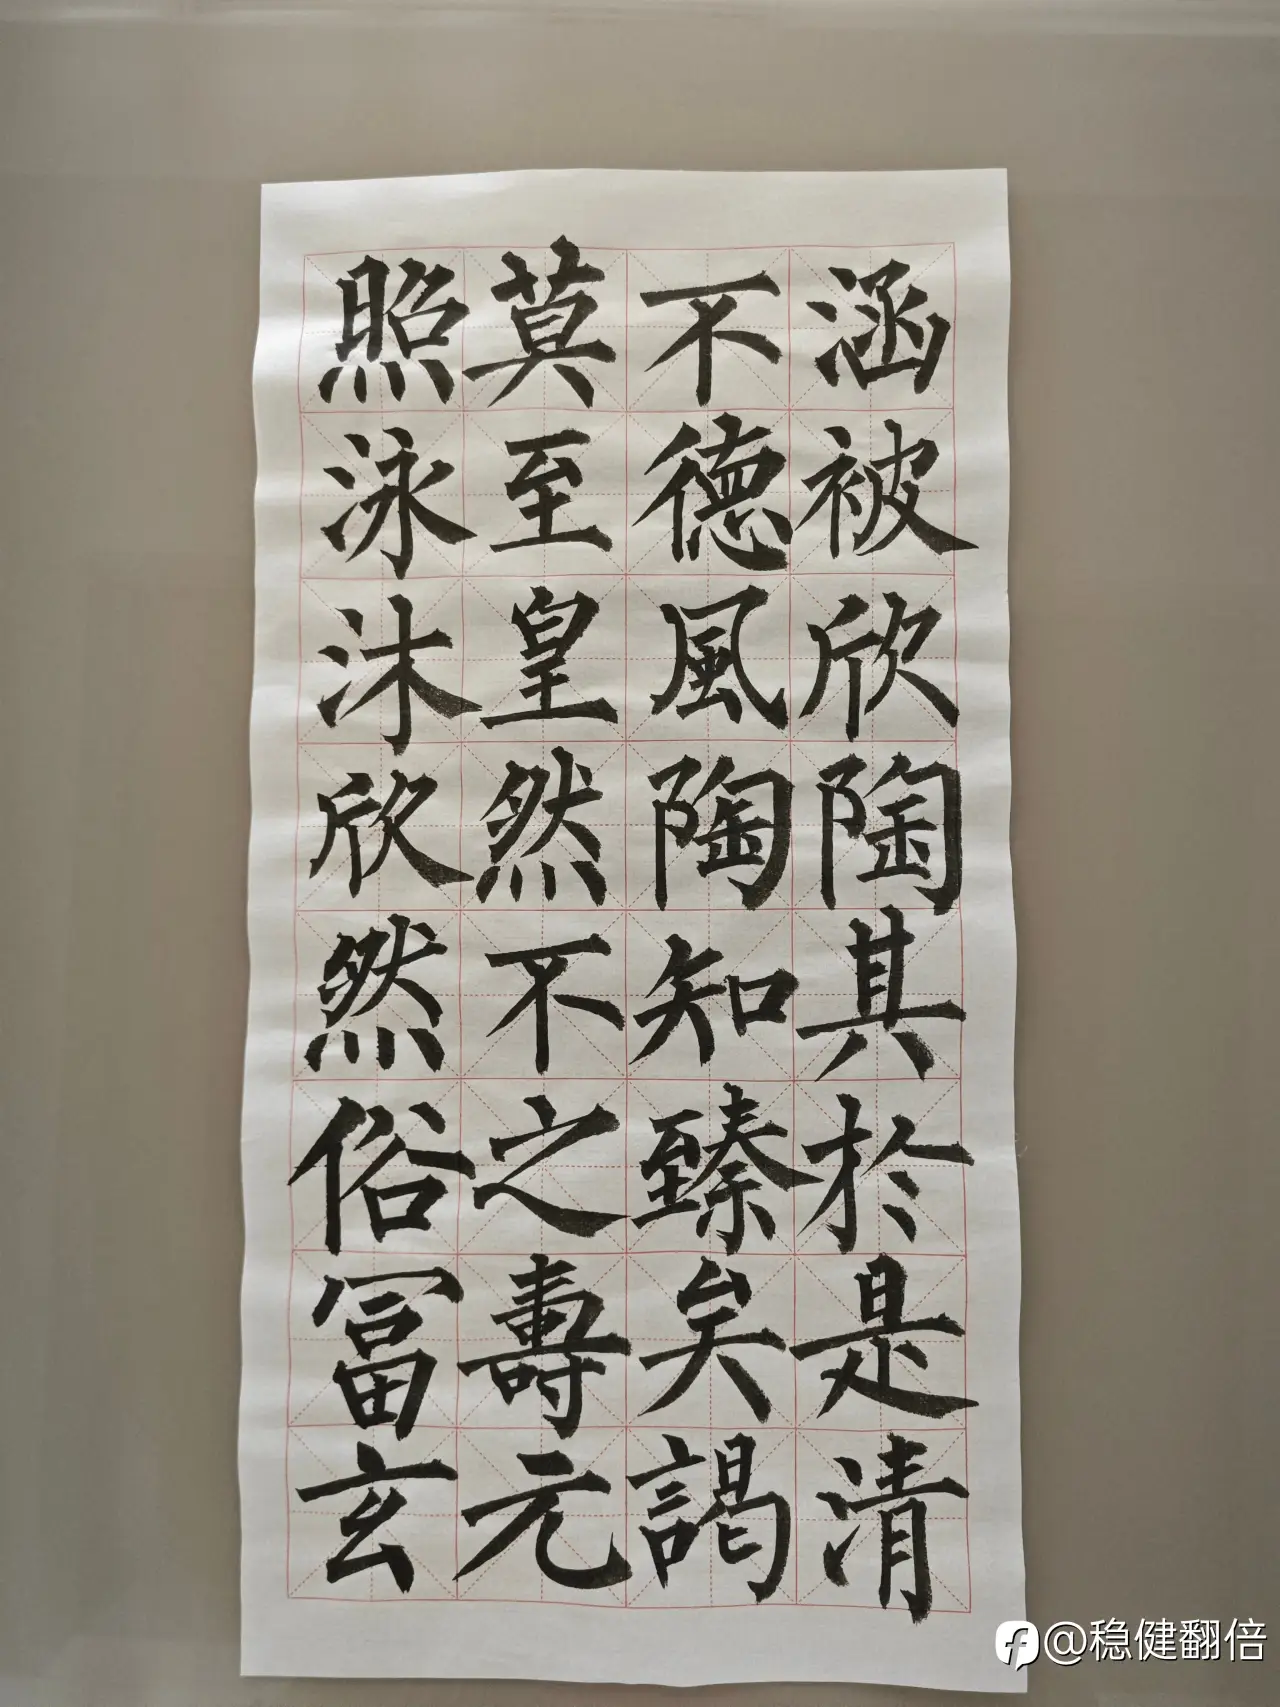 涵被欣陶其於是清
不德風陶知臻矣謁
莫至皇然不之壽元
照泳沐欣然俗冨玄
@稳健翻倍